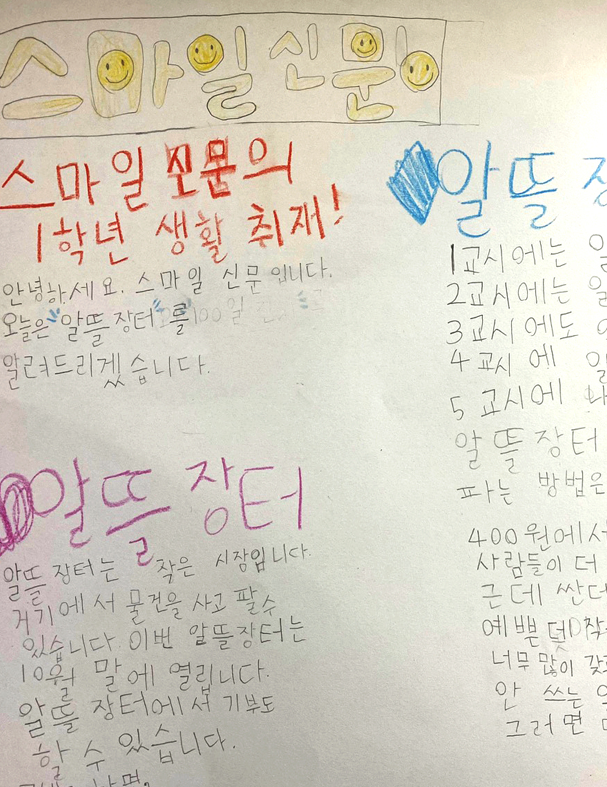 스마일 신문
스마일 신문의
1학년 생활 취재!
안녕하세요. 스마일 신문입니다.
오늘은 "알뜰 장터"를
알려드리겠습니다.
알뜰 장터
알뜰 장터는 작은 시장입니다.
거기에서 물건을 사고 팔수
있습니다 이번 알뜰장터는
10월 말에 열립니다.
알뜰 장터에서 기부도
할 수 있습니다.
알뜰
1교시에는
2교시에는
3교시에도
4교시에
5교시에
알뜰 장터
파는 방법은
400원에서
사람들이 더
근데 싼데
예쁘
너무 많이
안 쓰는
그러면